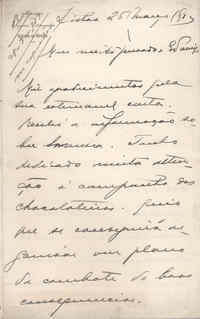 Lisboa 25 Março
Meu muito presado
Mil agradecimentos pela
sua estimavel carta.
Recebi a informação so-
bre
dedicado muita atten-
ção á campanha dos
chocolateiros. Creio
que se conseguirá or-
ganisar um plano
de combate de boas
consequencias.